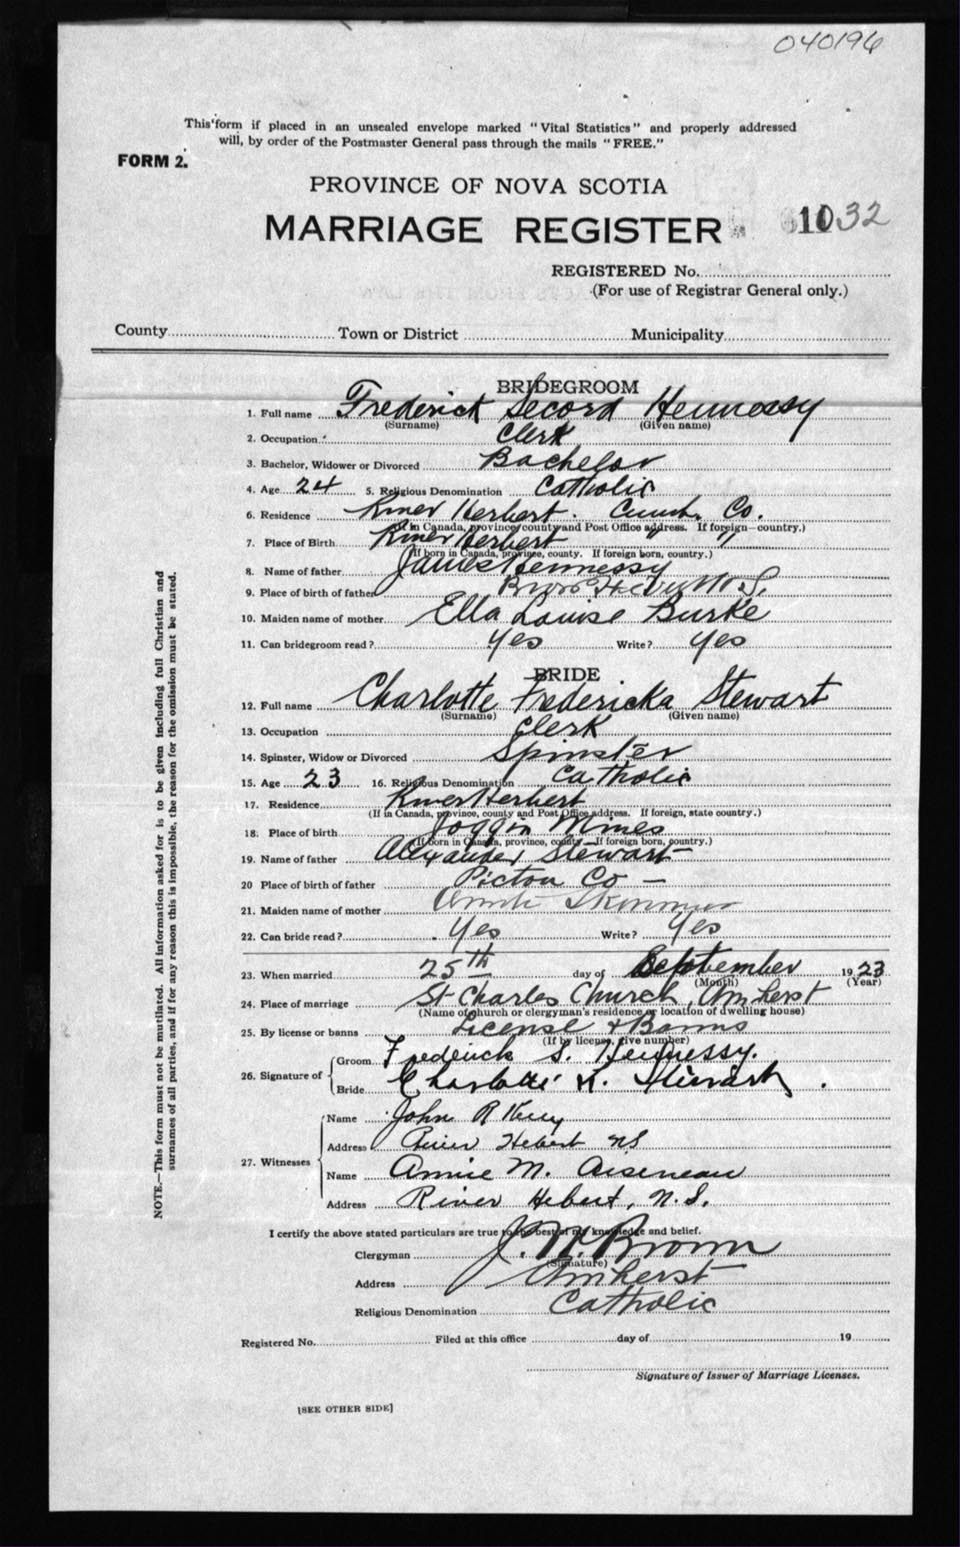 040196
This form if placed in an unsealed envelope marked "Vital Statistics" and properly addressed
will, by order of the Postmaster General pass through the mails "FREE."
FORM 2.
PROVINCE OF NOVA SCOTIA
MARRIAGE REGISTER
1032
REGISTERED No.
(For use of Registrar General only.)
County Town or District Municipality
BRIDEGROOM
1. Full name Frederick Secord Hennessy
(Surname) (Given name)
2. Occupation. Clerk
3. Bachelor, Widower or Divorced Bachelor
4. Age 24 5. Religious Denomination Catholic
6. Residence River Herbert. Cumb. Co.
(If in Canada, province, county and Post Office address. If foreign—country.)
7. Place of Birth River Herbert " "
(If born in Canada, province, county. If foreign born, country.)
8. Name of father James Hennessy
9. Place of birth of father N.S.
10. Maiden name of mother Ella Louise Burke
11. Can bridegroom read? Yes Write? Yes
BRIDE
12. Full name Charlotte Fredericka Stewart
(Surname) (Given name)
13. Occupation Clerk
14. Spinster, Widow or Divorced Spinster
15. Age 23 16. Religious Denomination Catholic
17. Residence River Herbert
(If in Canada, province, county and Post Office address. If foreign, state country.)
18. Place of birth Joggin Mines
(If born in Canada, province, county—If foreign born, country.)
19. Name of father Alexander Stewart
20 Place of birth of father Pictou Co —
21. Maiden name of mother
22. Can bride read? Yes Write? Yes
23. When married 25th day of September 1923
(Month) (Year)
24. Place of marriage St Charles Church, Amherst
(Name of church or clergyman's residence or location of dwelling house)
25. By license or banns License & Banns
(If by license, give number)
26. Signature of
Groom Frederick S. Hennessy.
Bride Charlotte Stewart.
27. Witnesses
Name John R
Address River Hebert NS
Name Annie M. Arseneau
Address River Hebert, N.S.
I certify the above stated particulars are true to the best of my knowledge and belief.
Clergyman J. W. Brown
(Signature)
Address Amherst
Religious Denomination Catholic
Registered No. Filed at this office day of 19
Signature of Issuer of Marriage Licenses.
[SEE OTHER SIDE]
NOTE.—This form must not be mutilated. All information asked for is to be given including full Christian and
surnames of all parties, and if for any reason this is impossible, the reason for the omission must be stated.